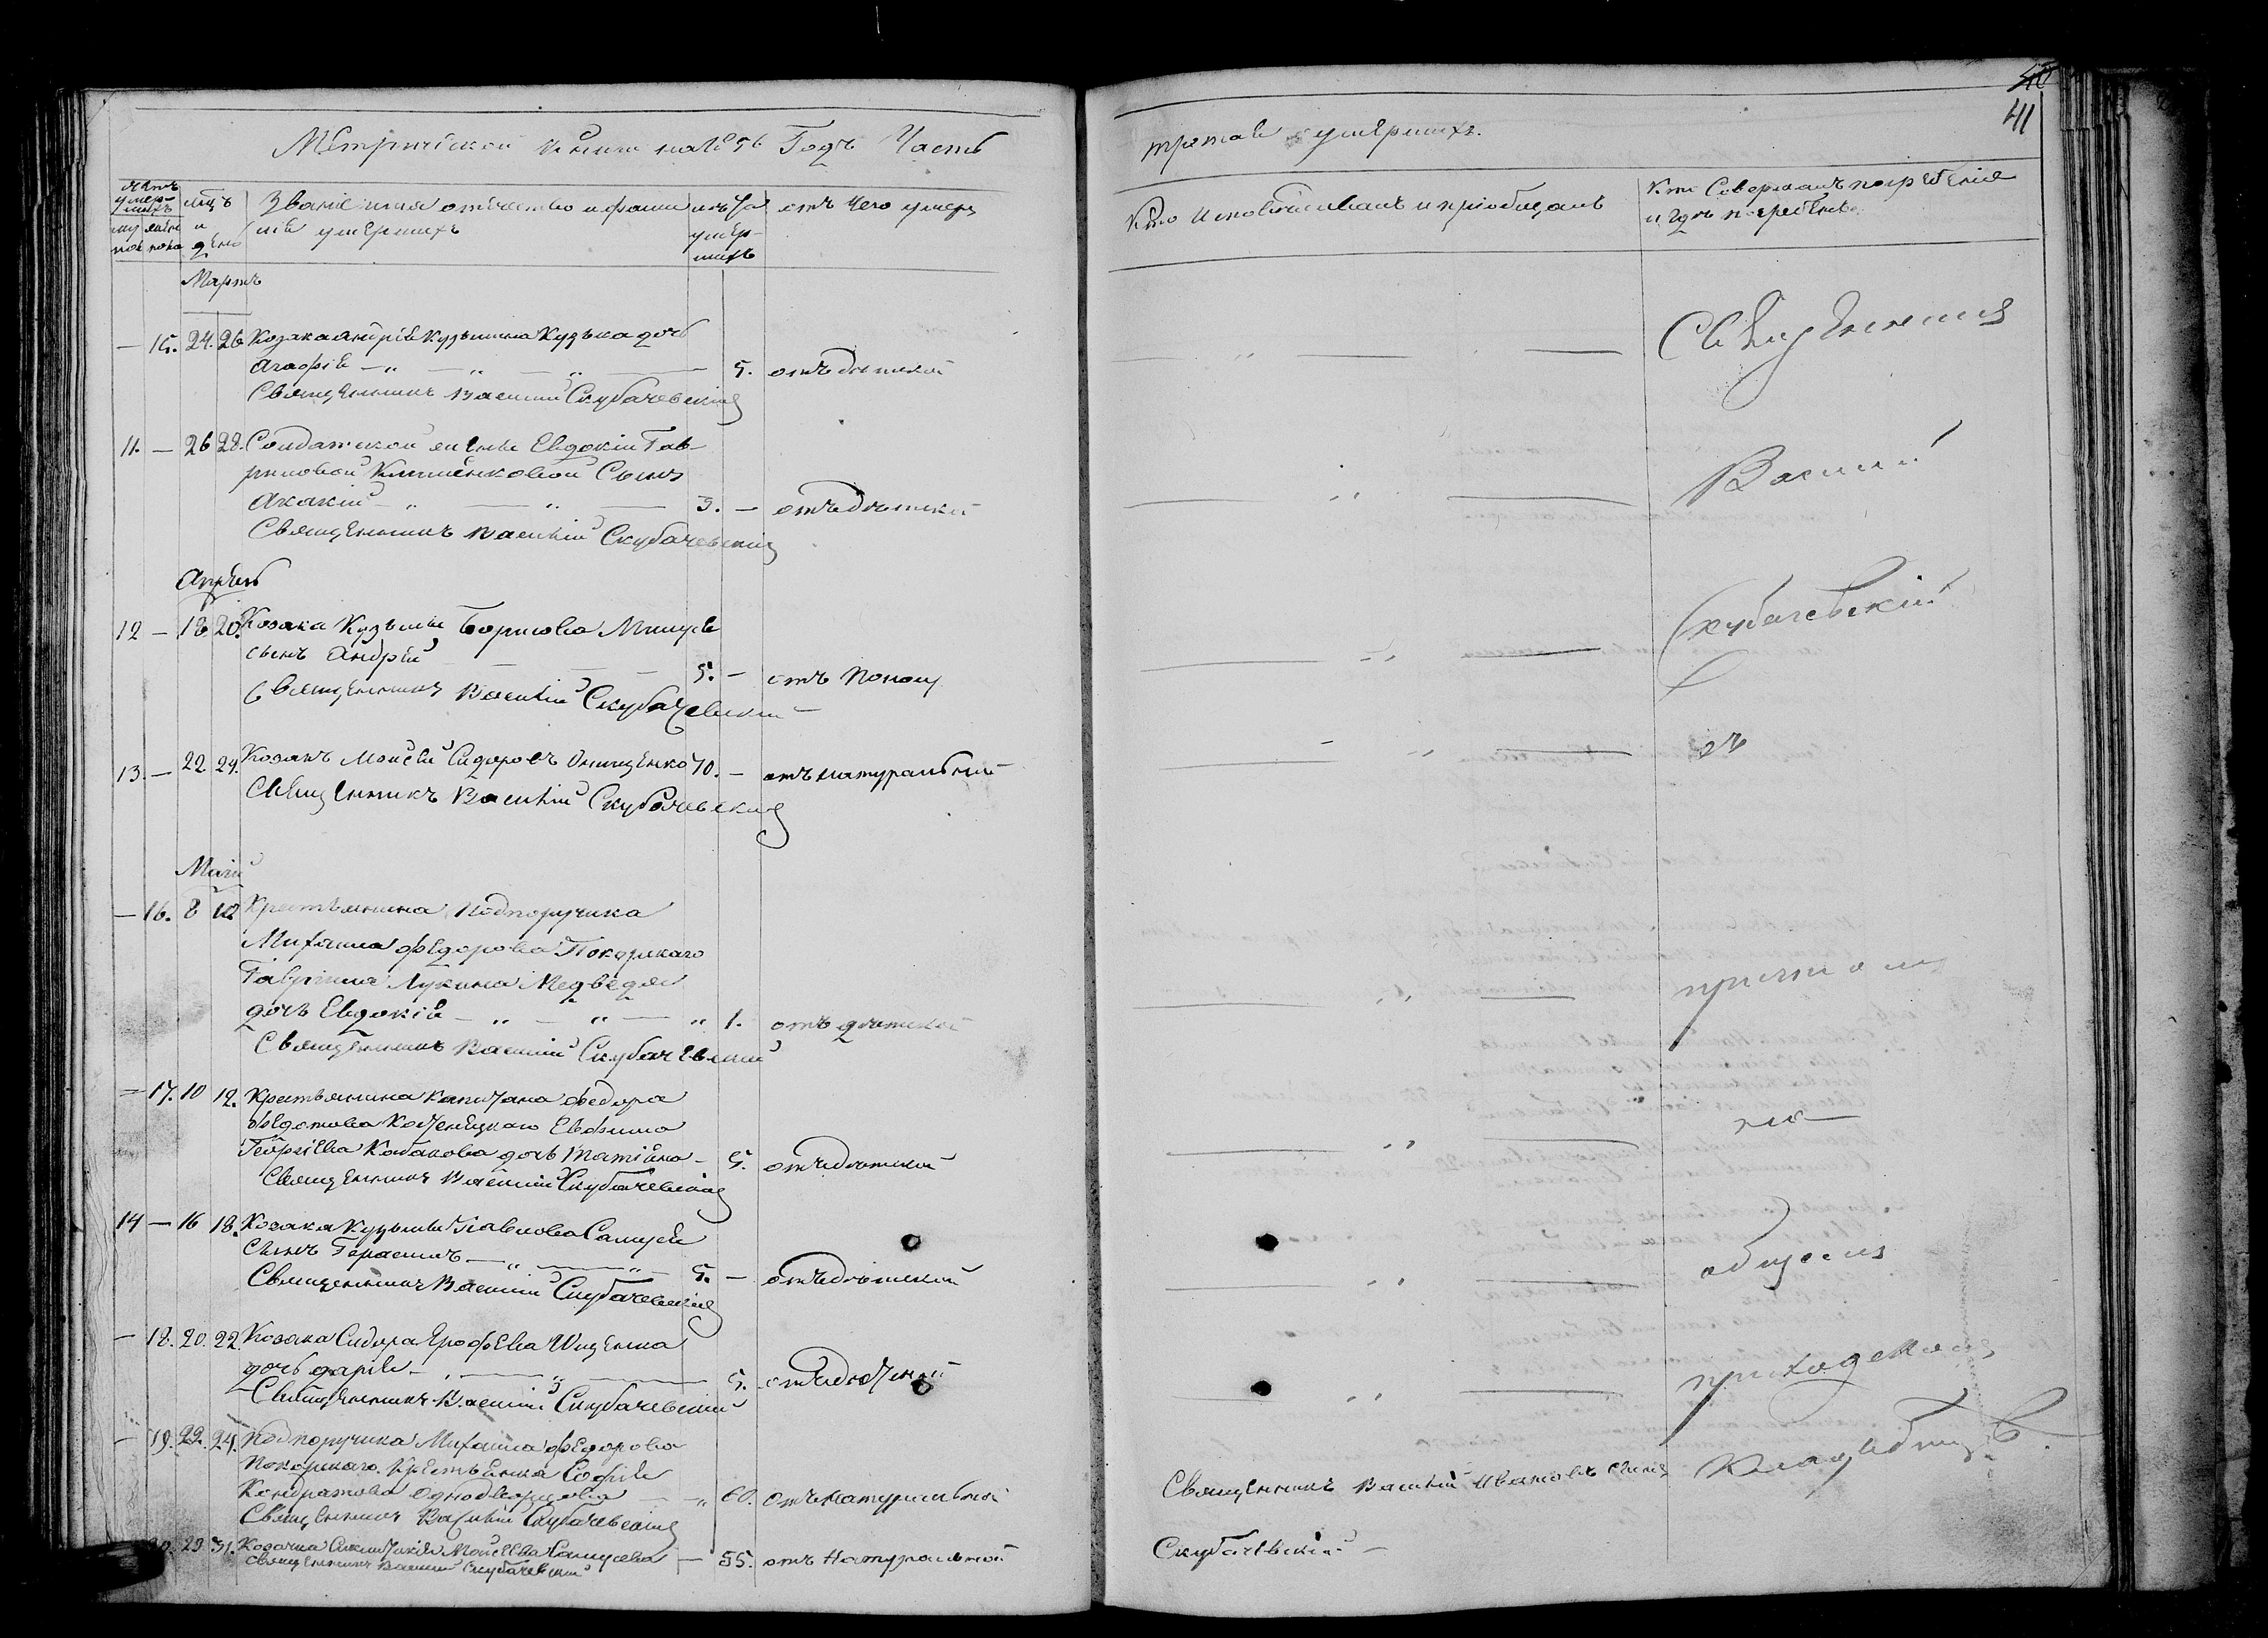 40
41
Метрической книги на 1856 Годъ Часть
третая умершихъ.
Мцъ и день
Званіе имя отчество и фами
лія умершихъ
умер-
шихъ
отъ чего умеръ
Кто исповѣдывалъ и пріобщалъ
Кто Совершалъ погребеніе
и гдѣ погребены
Мартъ
— 15. 24. 26. Козака Андрія Кузьмина Кузька дочь
Агафія — „ — „ — „ — 5. отъ дѣтской
Священникъ Василій Скубачевскій
11. — 26 28. Солдатской жены Евдокіи Гав-
риловой Клименковой Сынъ
Акакій — „ — „ — 3. — отъ дѣтской
Священникъ Василій Скубачевскій
Апрѣль
12 — 18 20. Козака Кузьмы Борисова
сынъ Андрій — 5. — отъ
Священникъ Василій Скубачевскій
13. — 22 24. Козакъ Моисей Сидоровъ Онищенко 70. — отъ натуральной
Священникъ Василій Скубачевскій
Маій
— 16. 8 10 Крестьянина Подпоручика
Михаила Федорова Покорскаго
Гавріила Лукина Медведя
дочь Евдокія — „ — „ — „ 1. отъ дѣтской
Священникъ Василій Скубачевскій
— 17. 10 12. Крестьянина Капитана Федора
Федотова Евфима
Георгіева Кабакова дочь Татіана — 5. отъ дѣтской
Священникъ Василій Скубачевскій
14 — 16 18. Козака Кузьмы Павлова Самусея
Сынъ Герасимъ — „ — „ — 5. — отъ дѣтской
Священникъ Василій Скубачевскій
— 18. 20. 22 Козака Сидора Ерофѣева Ищенка
дочь Дарія — „ — „ — 5. отъ дѣтской
Священникъ Василій Скубачевскій
— 19. 22. 24. Подпоручика Михаила Федорова
Покорскаго Крестьянка Софія
Кондратова Однодворцова — „ 60. отъ натуральной
Священникъ Василій Скубачевскій
20. 29 31. Козачка Моисеева Самусева — 55. отъ Натуральной
Священникъ Василій Скубачевскій
Священникъ
Василій
Скубачевскій
съ
причтомъ
на
общемъ
приходскомъ
Кладбищѣ.
Священникъ Василій Ивановъ сынъ
Скубачевскій —